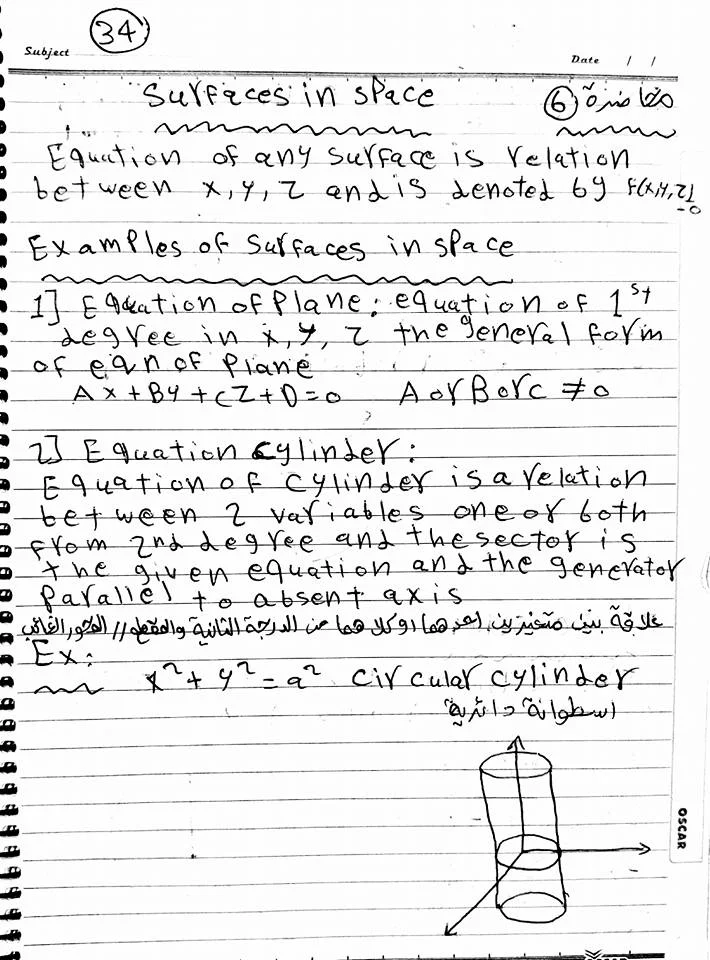 34
Subject
Date / /
Surfaces in space
محاضرة 6
Equation of any surface is relation
between x, y, z and is denoted by F(x,y,z)
=0
Examples of surfaces in space
1] Equation of Plane: equation of 1st
degree in x, y, z the general form
of eqn of Plane
Ax+By+cz+D=0 A or B or c ≠ 0
2] Equation cylinder:
Equation of cylinder is a relation
between 2 variables one or both
from 2nd degree and the sector is
the given equation and the generator
Parallel to absent axis
علاقة بين متغيرين احدهما او كلاهما من الدرجة الثانية والمقطع // المحور الغائب
Ex:
x²+y²=a² circular cylinder
اسطوانة دائرية
OSCAR